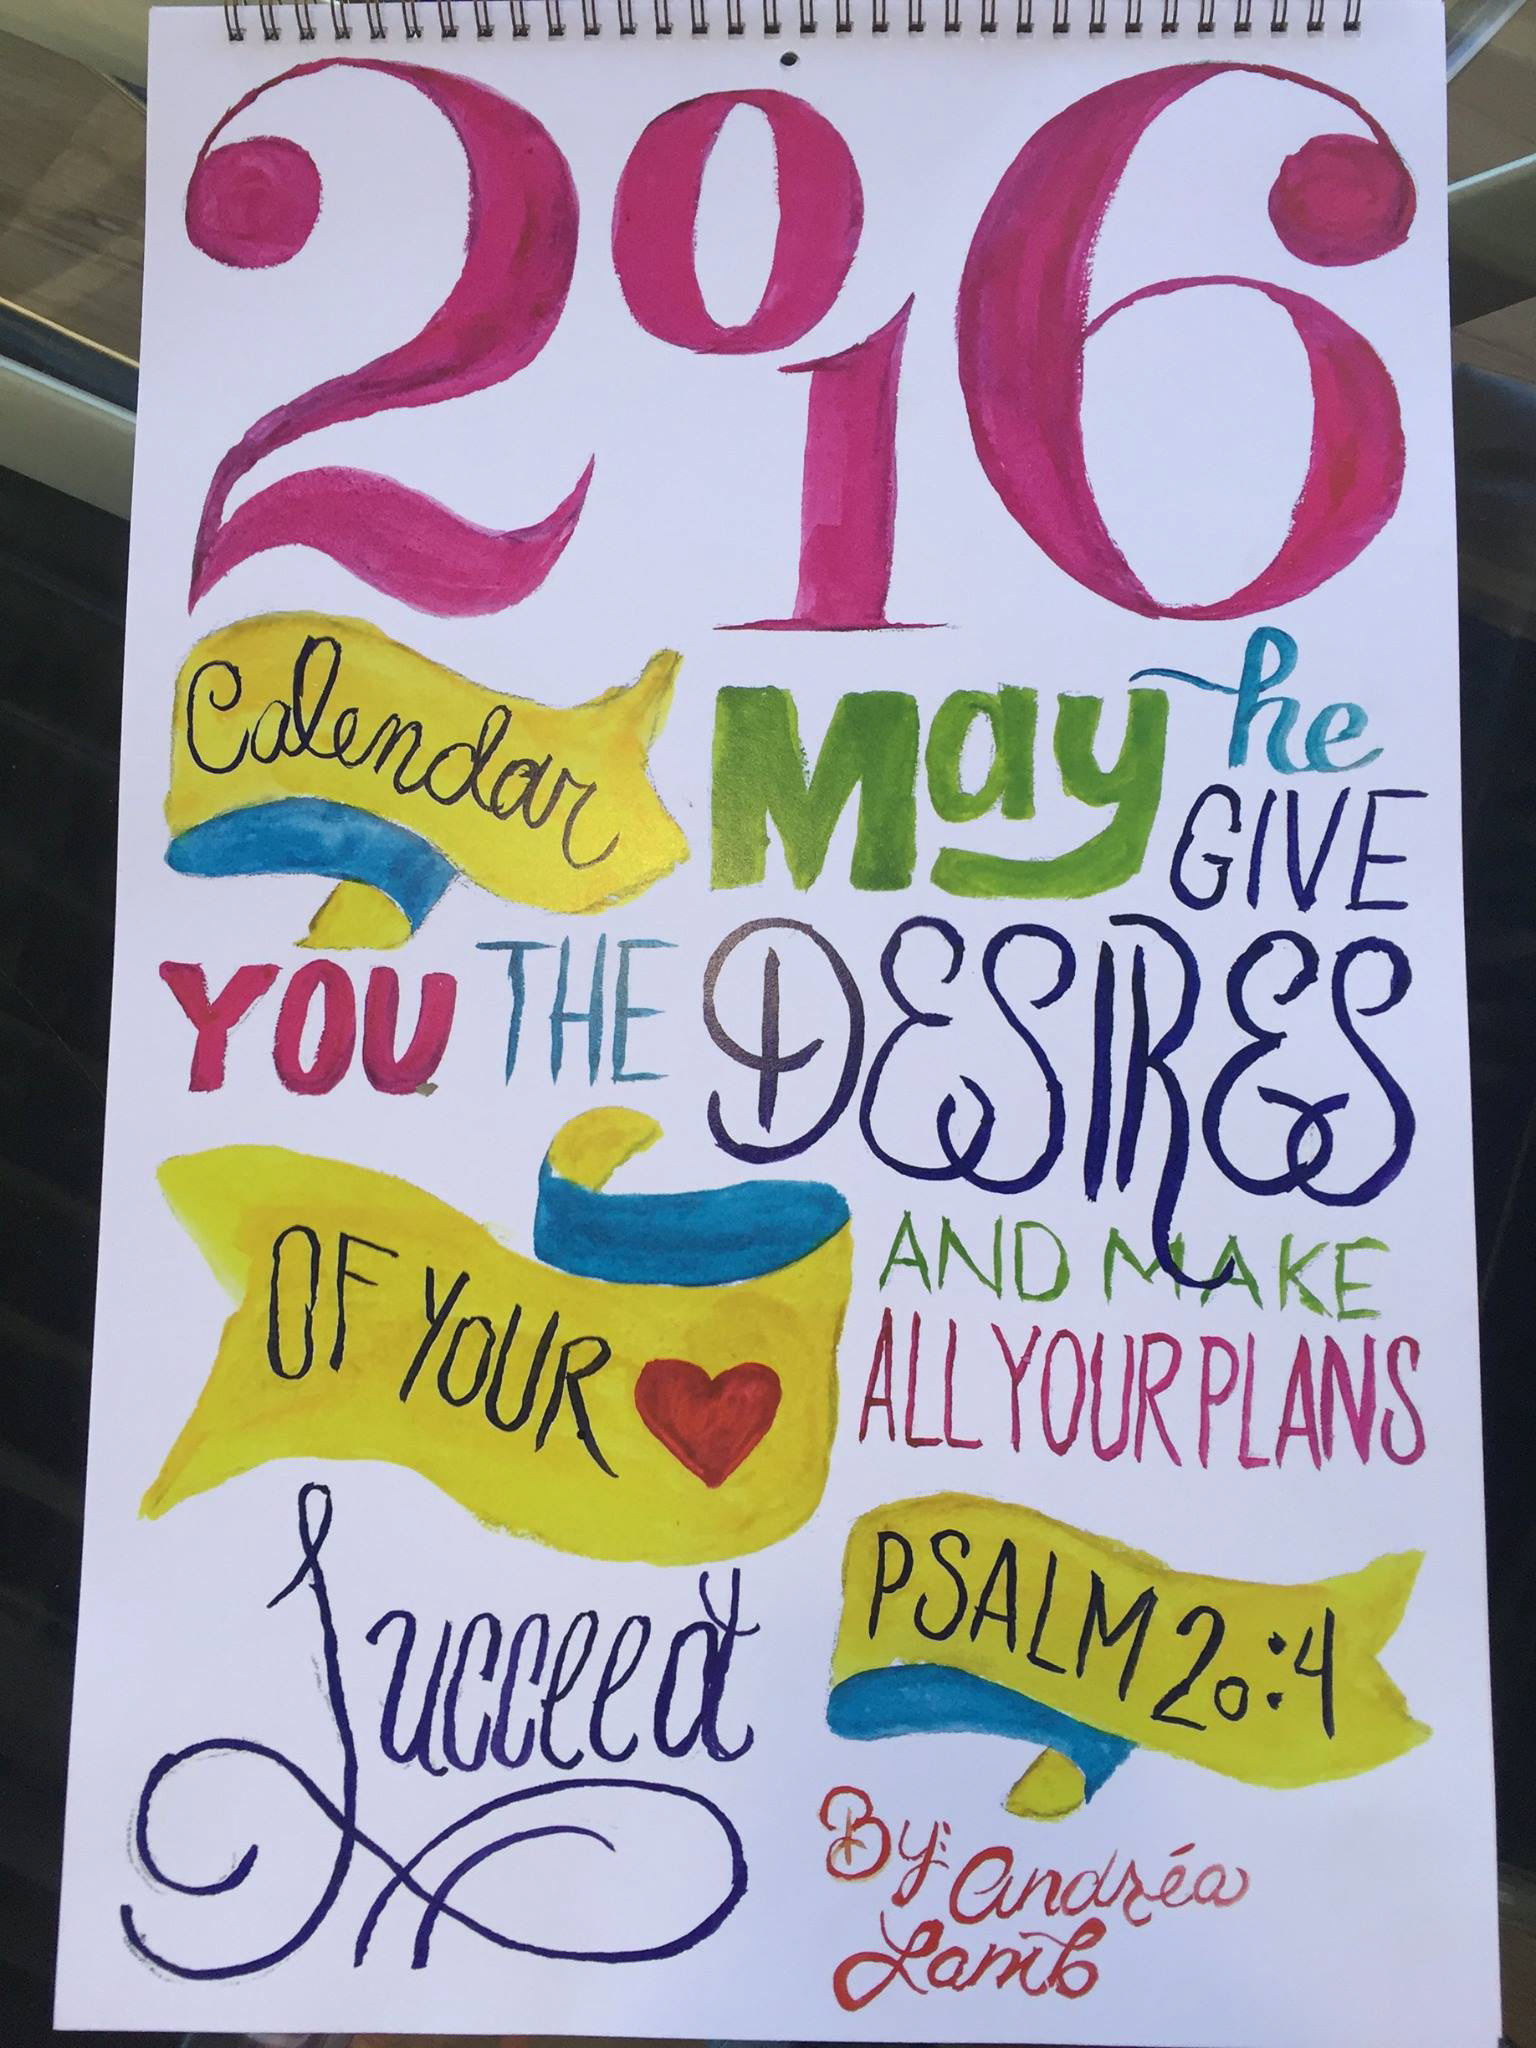 2016
Calendar
May he
GIVE
YOU THE DESIRES
OF YOUR
AND MAKE
ALL YOUR PLANS
Succeed
PSALM 20:4
By: Andréa
Lamb